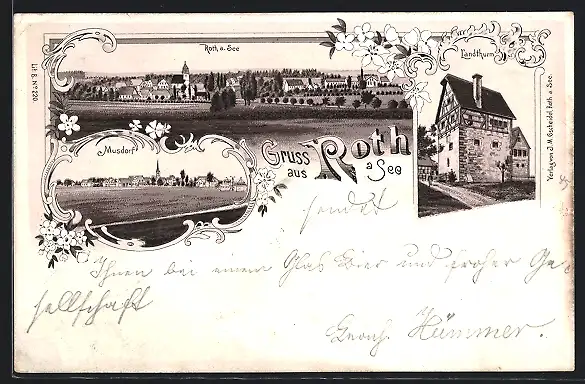 Lit. B. No 220.
Roth. a. See
Landthurm
Musdorf
Gruss aus Roth a See
Verlag von J. M. Gscheidel, Roth. a. See.
sendet
Ihnen bei einem Glas Bier und froher Ge-
sellschaft
Hümmer.